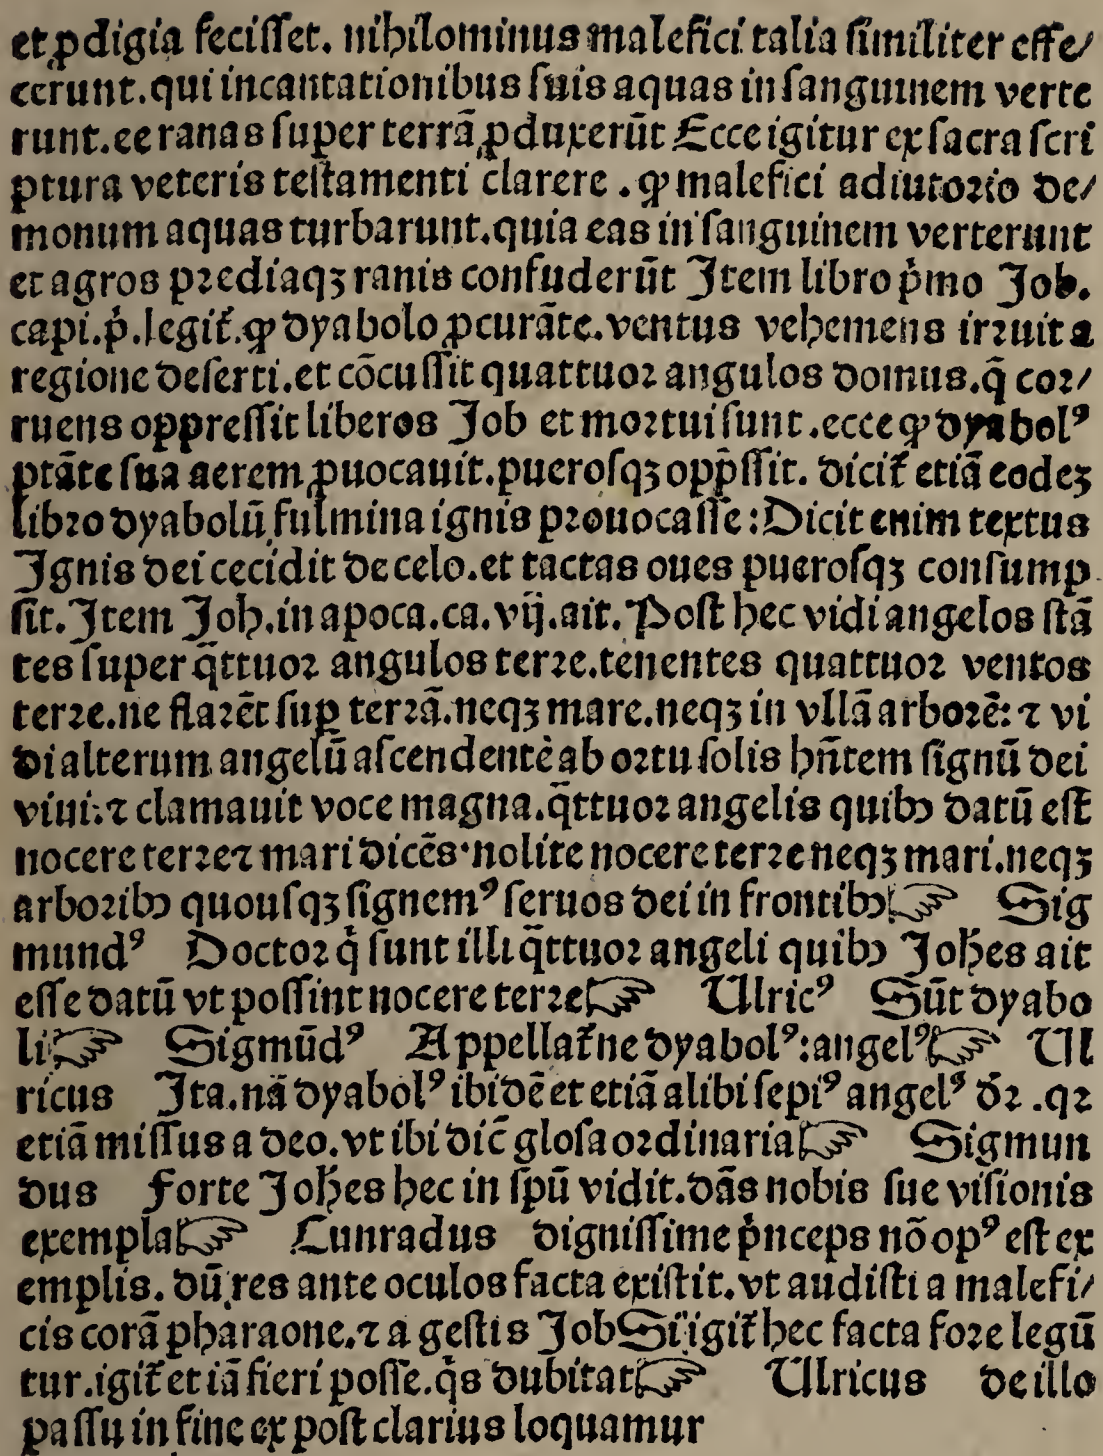 et ꝓdigia feciſſet. nihilominus malefici talia ſimiliter effe/
cerunt. qui incantationibus ſuis aquas in ſanguinem verte
runt. ee ranas ſuper terrā ꝓduxerūt Ecce igitur ex ſacra ſcri
ptura veteris teſtamenti clarere . ꝙ malefici adiutoꝛio de/
monum aquas turbarunt. quia eas in ſanguinem verterunt
et agros pꝛediaqꝫ ranis confuderūt Item libro pͥmo Job.
capi. pͥ. legit̄. ꝙ dyabolo ꝓcurāte. ventus vehemens irꝛuit a
regione deſerti. et cōcuſſit quattuoꝛ angulos domus. q̄ coꝛ/
ruens oppreſſit liberos Job et moꝛtui ſunt . ecce ꝙ dyabolꝰ
ptāte ſua aerem ꝓuocauit. pueroſqꝫ opp̄ſſit. dicit̄ etiā eodeꝫ
libꝛo dyabolū fulmina ignis pꝛouocaſſe : Dicit enim textus
Ignis dei cecidit de celo. et tactas oues pueroſqꝫ conſump
ſit. Item Joh. in apoca. ca. vij. ait. Poſt hec vidi angelos ſtā
tes ſuper q̄ttuoꝛ angulos terꝛe. tenentes quattuoꝛ ventos
terꝛe. ne flaꝛēt ſuꝑ terꝛā. neqꝫ mare. neqꝫ in vllā arboꝛē: ⁊ vi
di alterum angelū aſcendentē ab oꝛtu ſolis hn̄tem ſignū dei
viui: ⁊ clamauit voce magna. q̄ttuoꝛ angelis quibꝰ datū eſt
nocere terꝛe ⁊ mari dicēs· nolite nocere terꝛe neqꝫ mari. neqꝫ
arboꝛibꝰ quouſqꝫ ſignemꝰ ſeruos dei in frontibꝰ ☞ Sig
mundꝰ Doctoꝛ qͥ ſunt illi q̄ttuoꝛ angeli quibꝰ Joh̄es ait
eſſe datū vt poſſint nocere terꝛe ☞ Ulricꝰ Sūt dyabo
li ☞ Sigmūdꝰ Appellat̄ne dyabolꝰ: angelꝰ ☞ Ul
ricus Ita. nā dyabolꝰ ibidē et etiā alibi ſepiꝰ angelꝰ dꝛ̄ . qꝛ
etiā miſſus a deo. vt ibi dic̄ gloſa oꝛdinaria ☞ Sigmun
dus Forte Joh̄es hec in ſpū vidit. dās nobis ſue viſionis
exempla ☞ Cunradus digniſſime pͥnceps nō opꝰ eſt ex
emplis. dū res ante oculos facta exiſtit. vt audiſti a malefi/
cis corā pharaone. ⁊ a geſtis Job Si igit̄ hec facta foꝛe legū
tur. igit̄ et iā fieri poſſe. qͥs dubitat ☞ Ulricus de illo
paſſu in fine ex poſt clarius loquamur